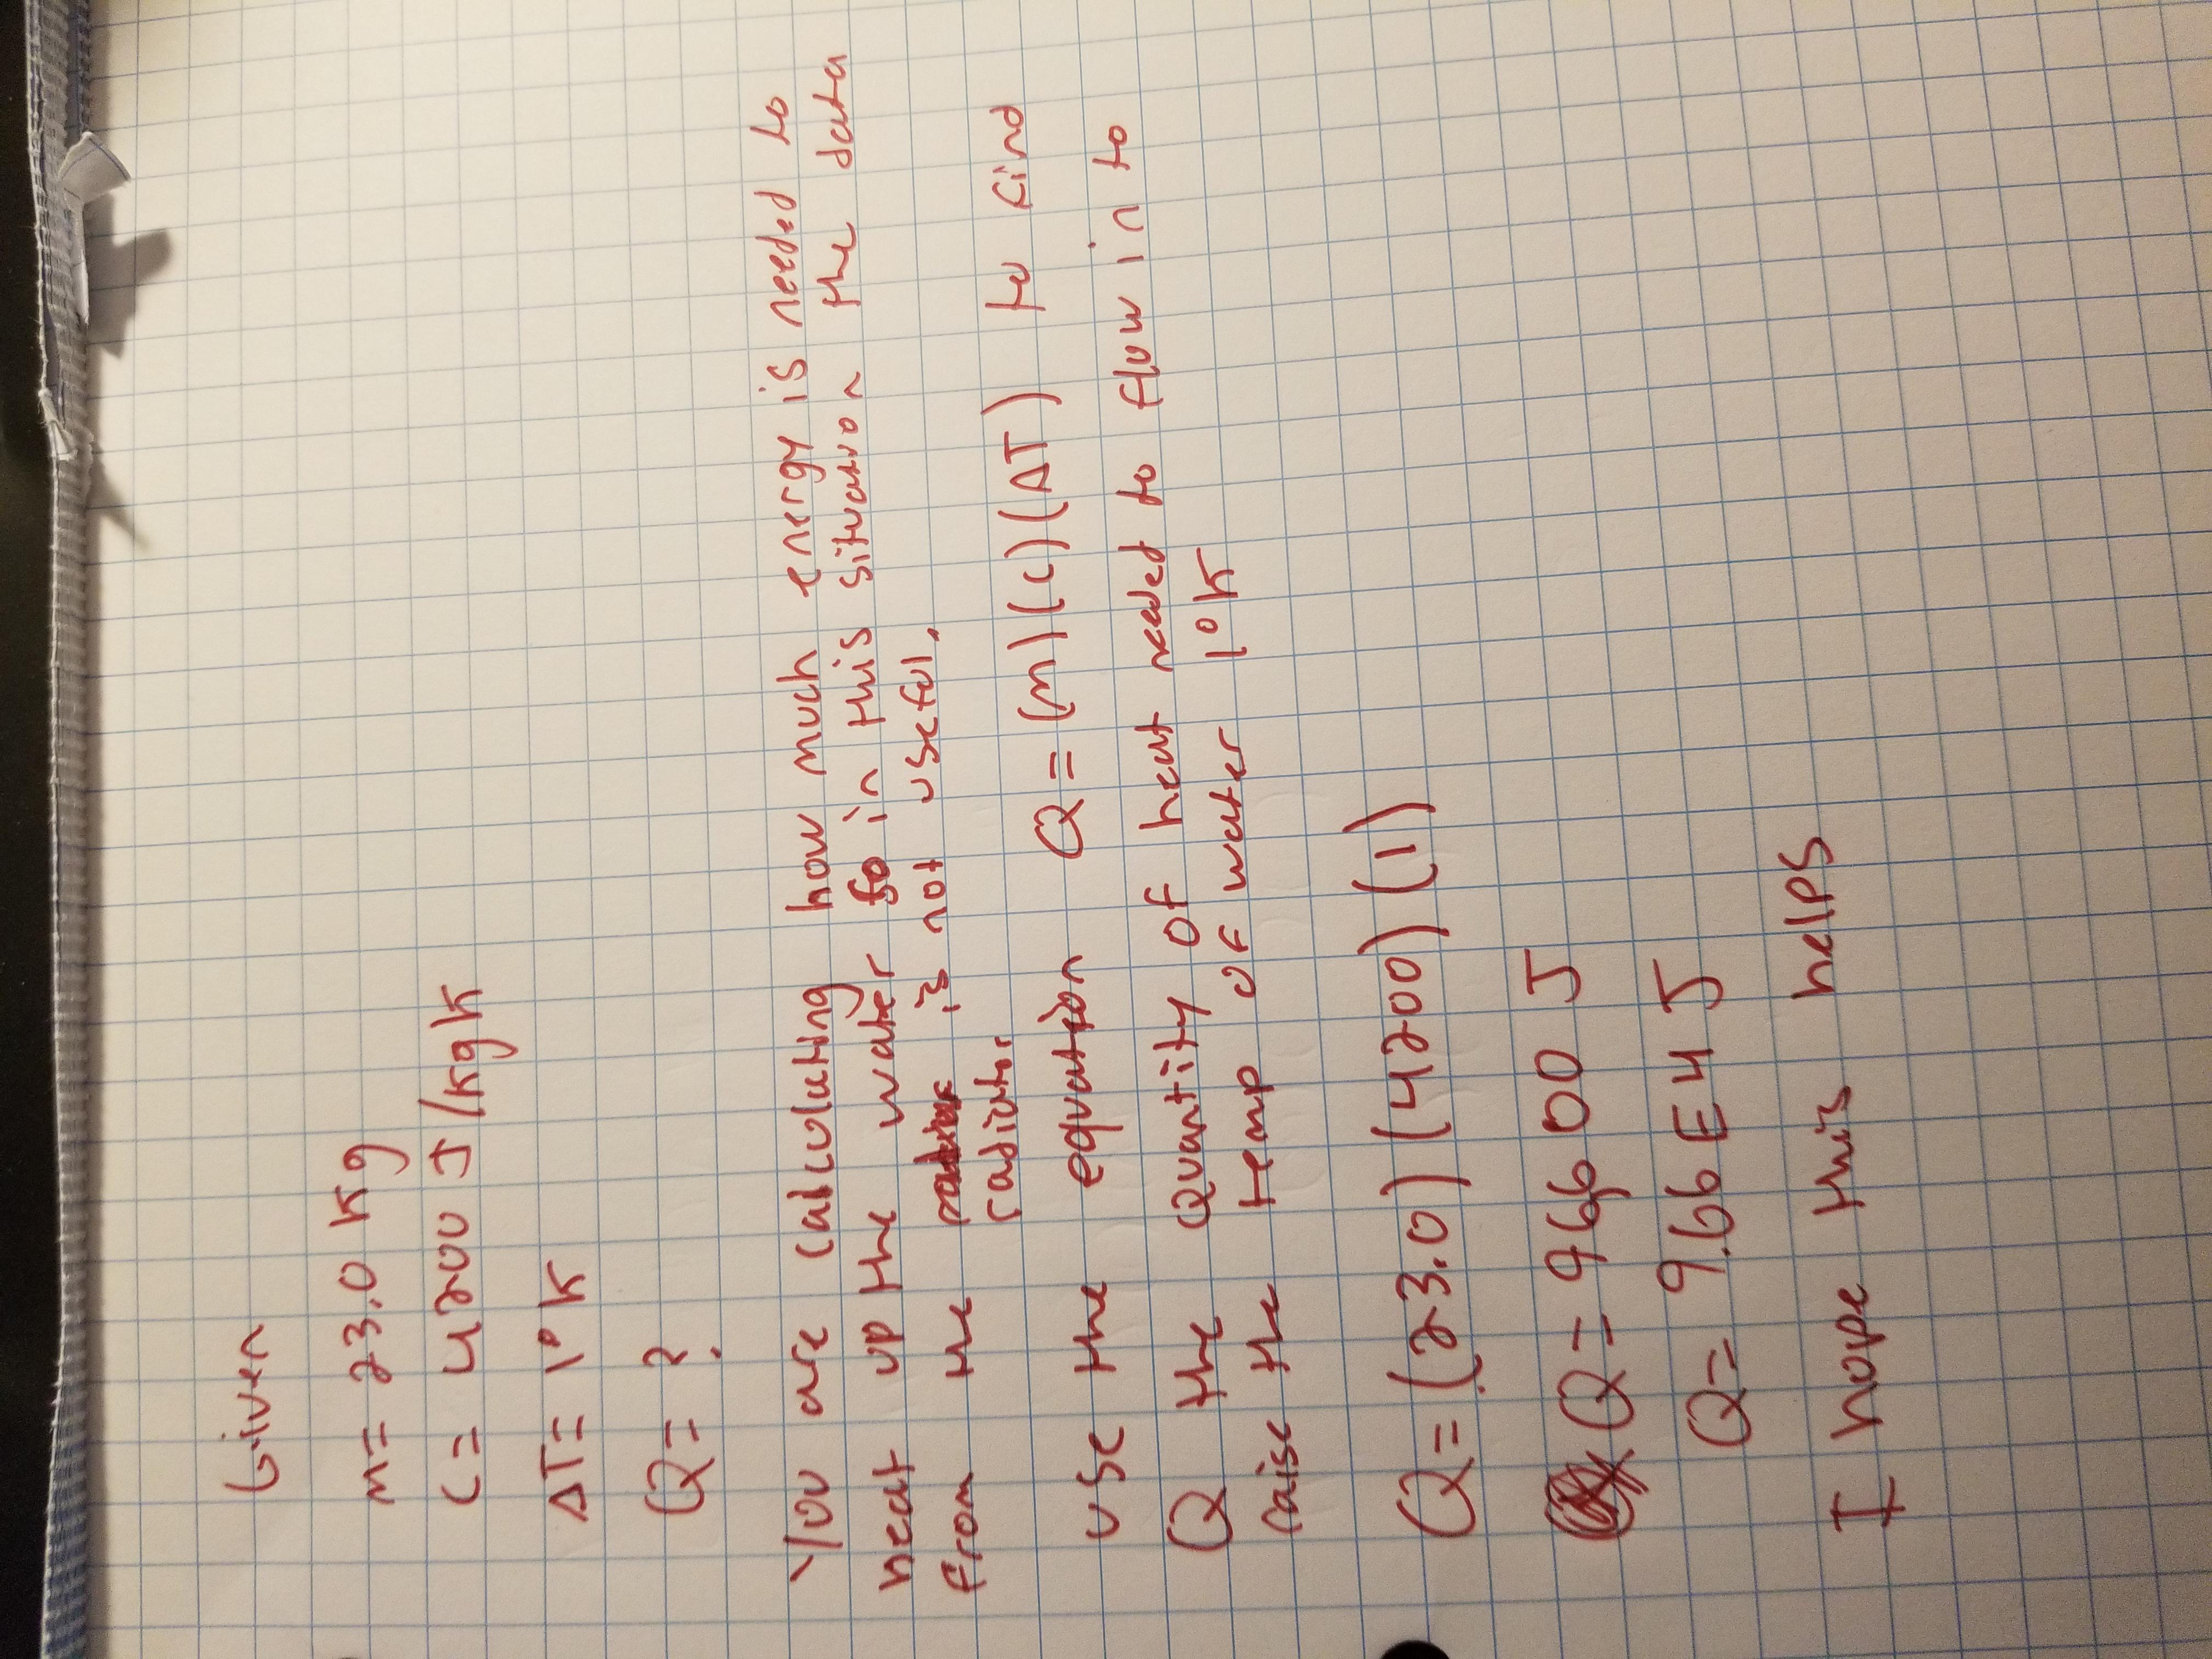 Given
m = 23.0 kg
c = 4200 J/kgK
ΔT = 1°K
Q = ?
You are calculating how much energy is needed to
heat up the water so in this situation the data
from the is not useful.
radiator
use the equation Q = (m)(c)(ΔT) to find
Q the quantity of heat needed to flow in to
raise the temp of water 1°K
Q = (23.0)(4200)(1)
Q = 96600 J
Q = 9.66 E4 J
I hope this helps